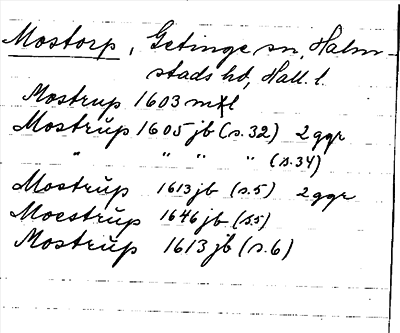 Mostorp, Getinge sn, Halm-
stads hd, Hall. l.
Mostrup 1603 mtl
Mostrŭp 1605 jb (s. 32) 2 ggr
" " " " (s. 34)
Mostrŭp 1613 jb (s. 5) 2 ggr
Moestrŭp 1646 jb (s. 5)
Mostrŭp 1613 jb (s. 6)